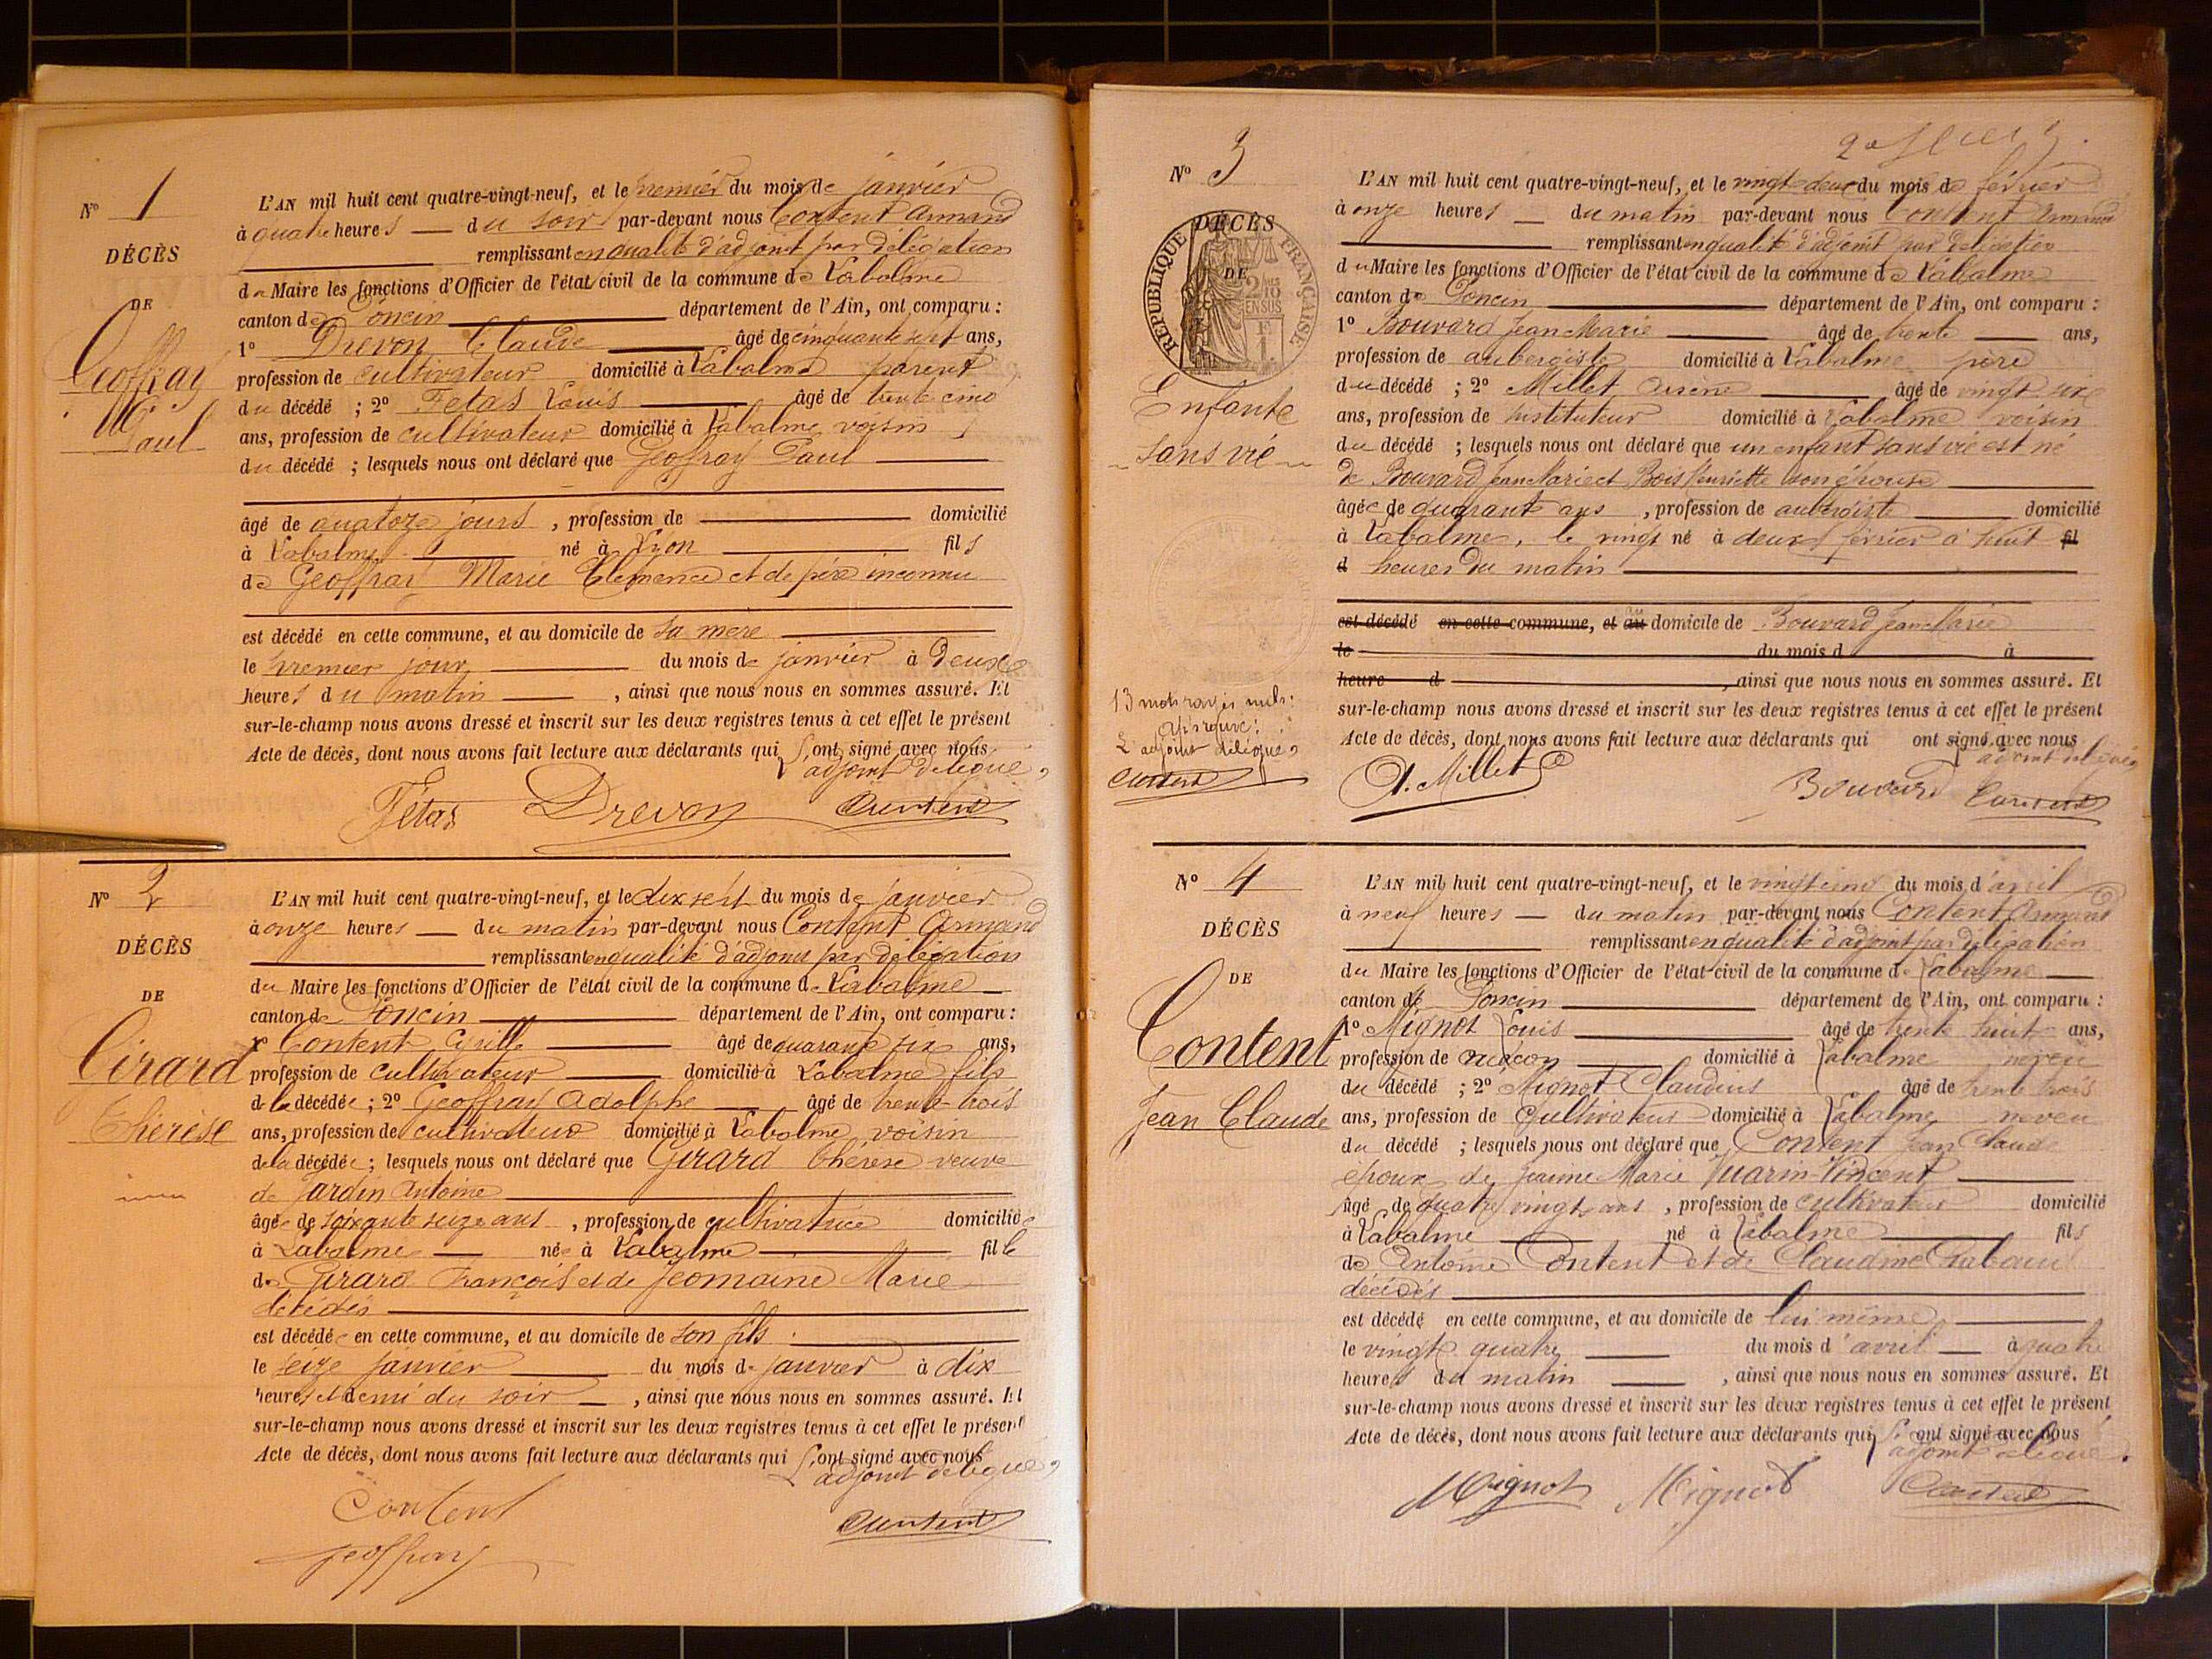 N° 1
DÉCÈS
DE
Geoffray
Paul
L'AN mil huit cent quatre-vingt-neuf, et le premier du mois de janvier
à quatre heures du soir par-devant nous Content Armand
remplissant en qualité d'adjoint par délégation
du Maire les fonctions d'Officier de l'état civil de la commune de Labalme
canton de Poncin département de l'Ain, ont comparu :
1° Drevon Claude âgé de cinquante sept ans,
profession de cultivateur domicilié à Labalme parent
du décédé ; 2° Fétas Louis âgé de trente cinq
ans, profession de cultivateur domicilié à Labalme voisin
du décédé ; lesquels nous ont déclaré que Geoffray Paul
âgé de quatoze jours , profession de domicilié
à Labalme né à Lyon fils
de Geoffray Marie Clémence et de père inconnu
est décédé en cette commune, et au domicile de sa mère
le premier jour du mois de janvier à deux
heures du matin , ainsi que nous nous en sommes assuré. Et
sur-le-champ nous avons dressé et inscrit sur les deux registres tenus à cet effet le présent
Acte de décès, dont nous avons fait lecture aux déclarants qui ont signé avec nous
L'adjoint délégué,
Fétas Drevon Content
N° 2
DÉCÈS
DE
Girard
Thérèse
L'AN mil huit cent quatre-vingt-neuf, et le dix sept du mois de janvier
à onze heures du matin par-devant nous Content Armand
remplissant en qualité d'adjoint par délégation
du Maire les fonctions d'Officier de l'état civil de la commune de Labalme
canton de Poncin département de l'Ain, ont comparu :
1° Content Cyrille âgé de quarante six ans,
profession de cultivateur domicilié à Labalme fils
de la décédée ; 2° Geoffray Adolphe âgé de trente trois
ans, profession de cultivateur domicilié à Labalme voisin
de la décédée ; lesquels nous ont déclaré que Girard Thérèse veuve
de Jardin Antoine
âgée de soixante seize ans , profession de cultivatrice domiciliée
à Labalme née à Labalme fille
de Girard François et de Jeomaine Marie
décédés
est décédée en cette commune, et au domicile de son fils
le seize janvier du mois de janvier à dix
heures et demi du soir , ainsi que nous nous en sommes assuré. Et
sur-le-champ nous avons dressé et inscrit sur les deux registres tenus à cet effet le présent
Acte de décès, dont nous avons fait lecture aux déclarants qui ont signé avec nous
L'adjoint délégué,
Content Content
Geoffray
N° 3
DÉCÈS
DE
RÉPUBLIQUE FRANÇAISE
2/10 EN SUS
Enfante
sans vie
L'AN mil huit cent quatre-vingt-neuf, et le vingt deux du mois de février
à onze heures du matin par-devant nous Content Armand
remplissant en qualité d'adjoint par délégation
du Maire les fonctions d'Officier de l'état civil de la commune de Labalme
canton de Poncin département de l'Ain, ont comparu :
1° Bouvard Jean Marie âgé de trente ans,
profession de aubergiste domicilié à Labalme père
du décédé ; 2° Millet Arsène âgé de vingt six
ans, profession de Instituteur domicilié à Labalme voisin
du décédé ; lesquels nous ont déclaré que un enfant sans vie est né
de Bouvard Jean Marie et Bois Henriette son épouse
âgée de quarante ans , profession de aubergiste domicilié
à Labalme, le vingt né à deux février à huit fil
d heures du matin
est décédé en cette commune, et au domicile de Bouvard Jean Marie
le du mois d à
heure d , ainsi que nous nous en sommes assuré. Et
sur-le-champ nous avons dressé et inscrit sur les deux registres tenus à cet effet le présent
Acte de décès, dont nous avons fait lecture aux déclarants qui ont signé avec nous
L'adjoint délégué,
13 mots rayés nuls:
Approuvé:
L'adjoint délégué,
Content
A. Millet Bouvard Content
N° 4
DÉCÈS
DE
Content
Jean Claude
L'AN mil huit cent quatre-vingt-neuf, et le vingt cinq du mois d'avril
à neuf heures du matin par-devant nous Content Armand
remplissant en qualité d'adjoint par délégation
du Maire les fonctions d'Officier de l'état civil de la commune de Labalme
canton de Poncin département de l'Ain, ont comparu :
1° Mignot Louis âgé de trente huit ans,
profession de maçon domicilié à Labalme neveu
du décédé ; 2° Mignot Claudius âgé de trente trois
ans, profession de Cultivateur domicilié à Labalme neveu
du décédé ; lesquels nous ont déclaré que Content Jean Claude
époux de Jeanne Marie Vuarin-Vincent
âgé de quatre vingts ans , profession de cultivateur domicilié
à Labalme né à Labalme fils
de Antoine Content et de Claudine
décédés
est décédé en cette commune, et au domicile de lui même
le vingt quatre du mois d'avril à quatre
heures du matin , ainsi que nous nous en sommes assuré. Et
sur-le-champ nous avons dressé et inscrit sur les deux registres tenus à cet effet le présent
Acte de décès, dont nous avons fait lecture aux déclarants qui ont signé avec nous
L'adjoint délégué.
Mignot Mignot Content